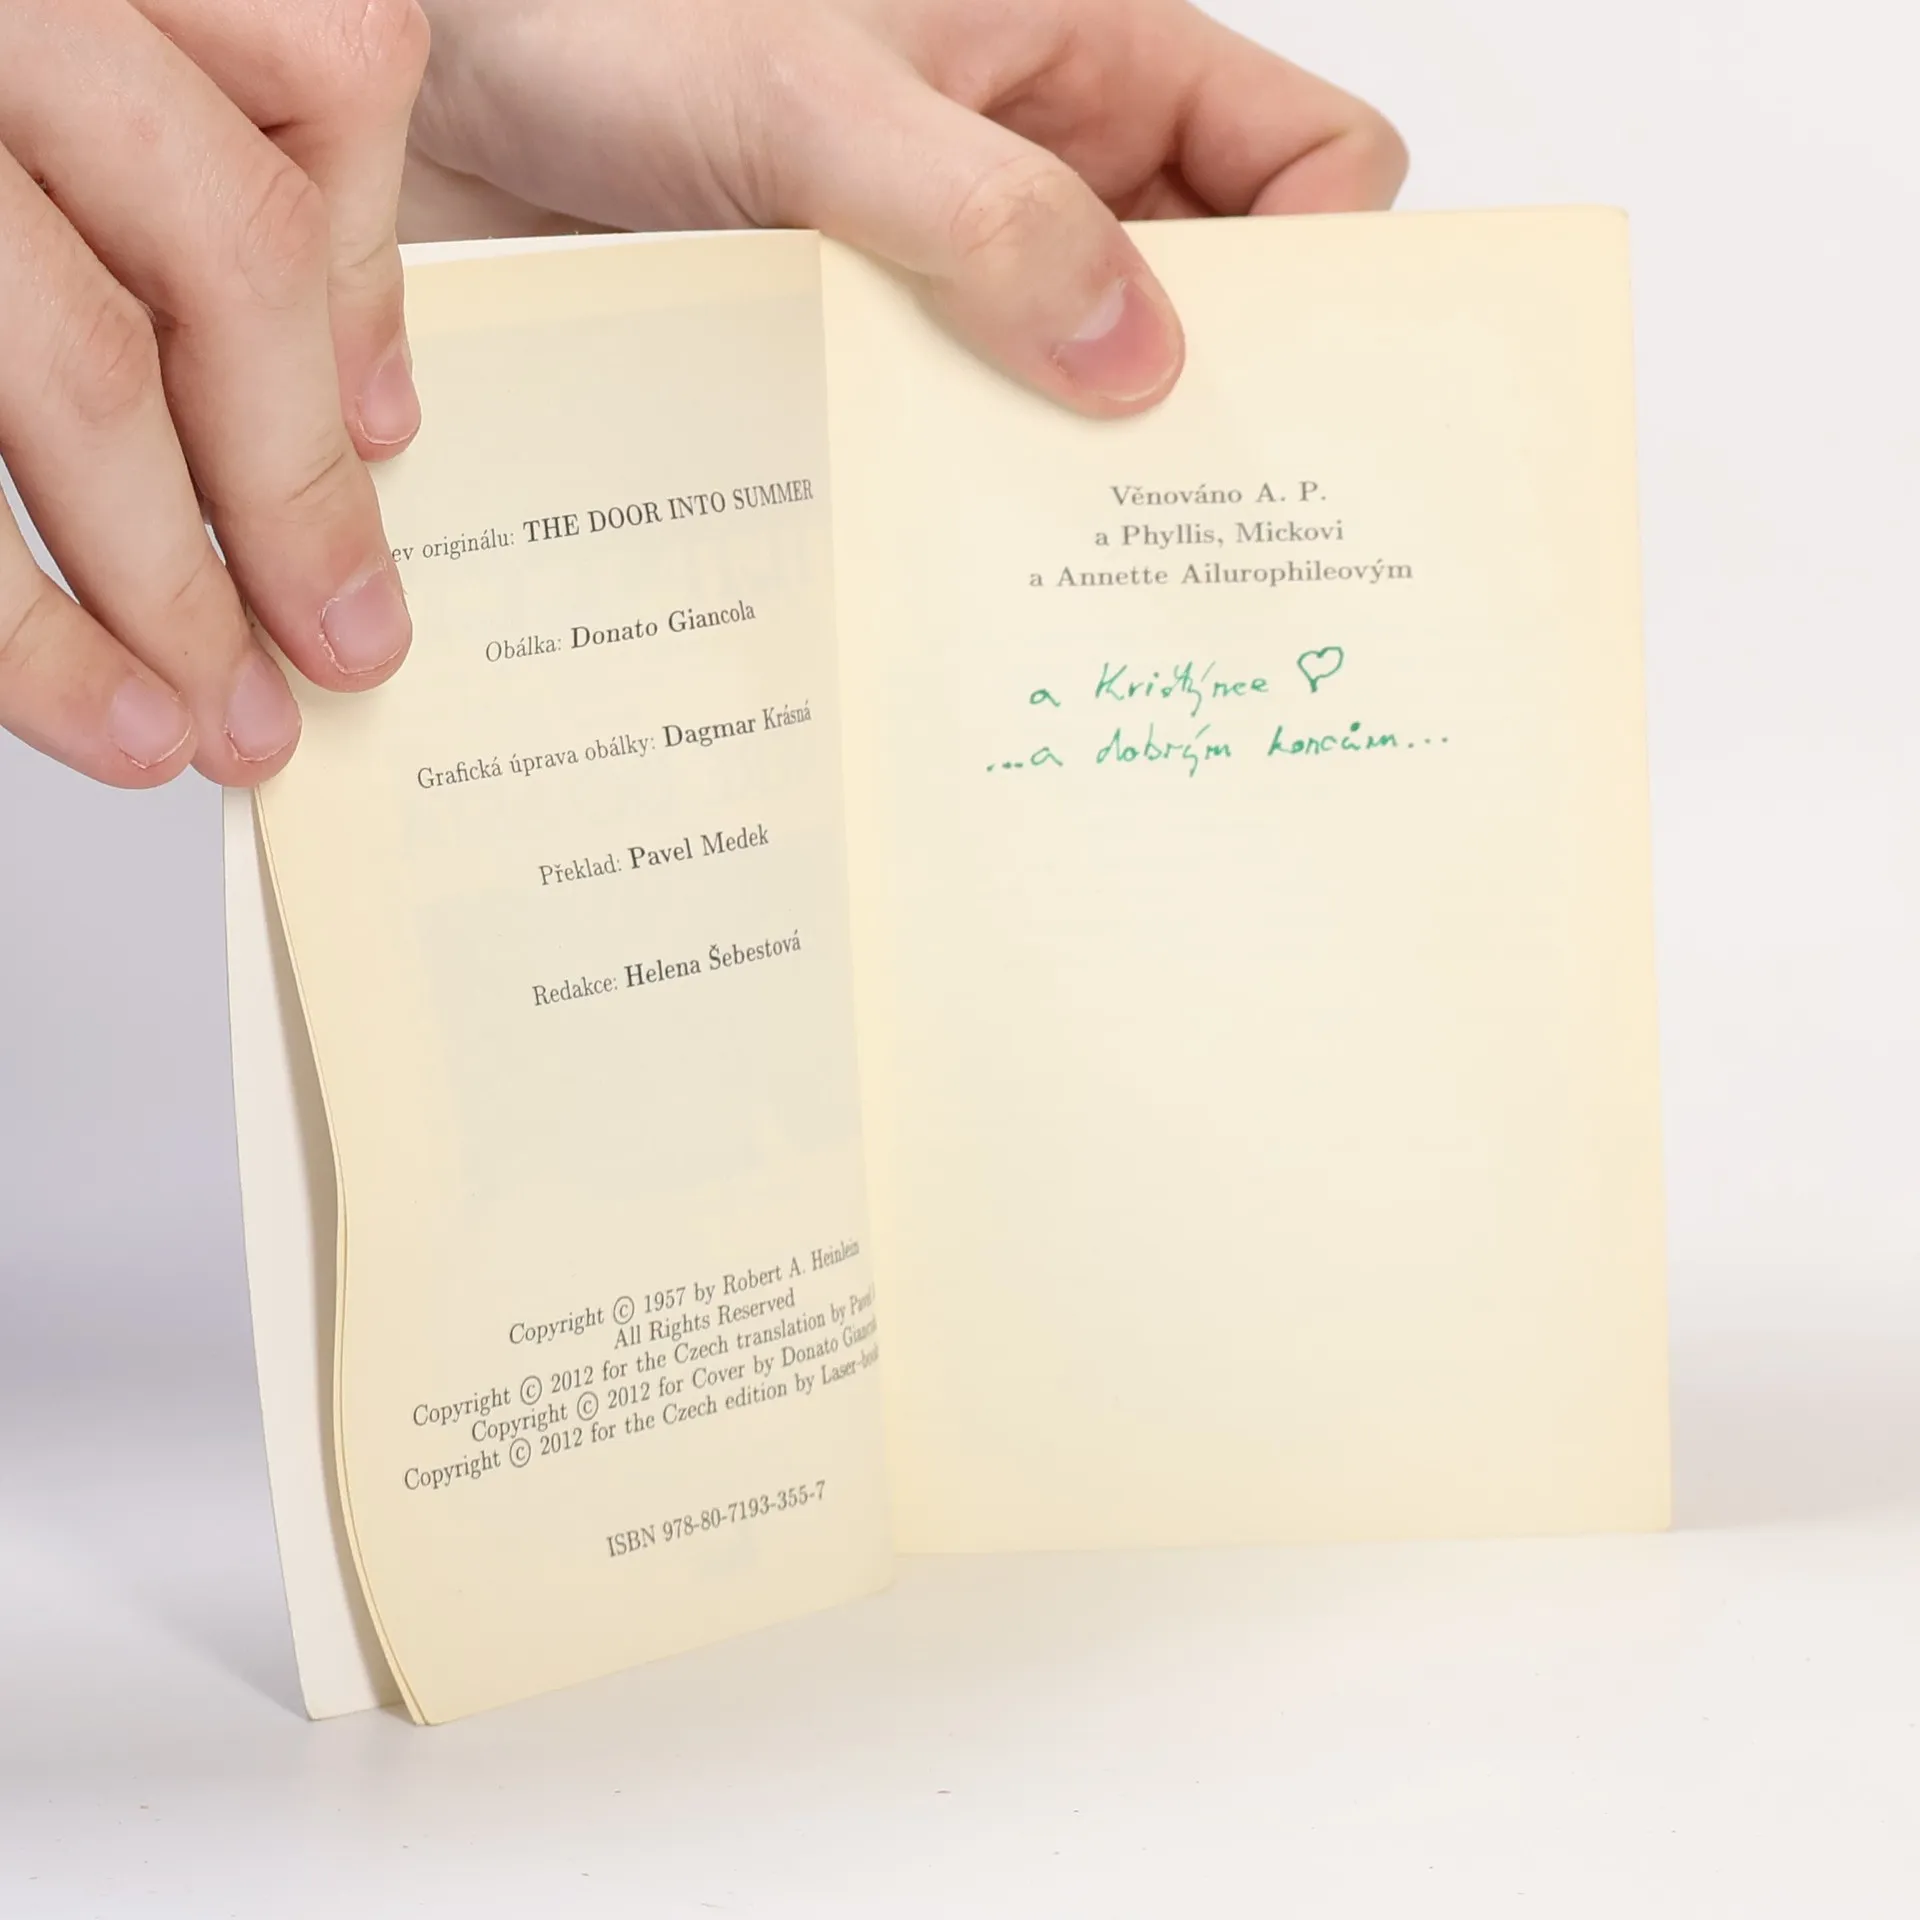 ev originálu: THE DOOR INTO SUMMER
Obálka: Donato Giancola
Grafická úprava obálky: Dagmar Krásná
Překlad: Pavel Medek
Redakce: Helena Šebestová
Copyright © 1957 by Robert A. Heinlein
All Rights Reserved
Copyright © 2012 for the Czech translation by Pavel
Copyright © 2012 for Cover by Donato Giancol
Copyright © 2012 for the Czech edition by Laser-book
ISBN 978-80-7193-355-7
Věnováno A. P.
a Phyllis, Mickovi
a Annette Ailurophileovým
a Kristýnce ♡
...a dobrým koncům...